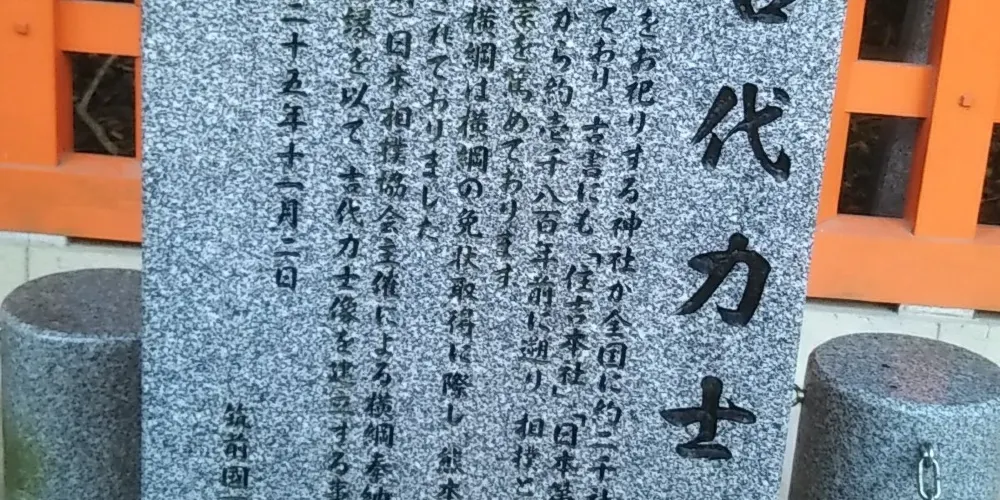 古代力士
をお祀りする神社が全国に約二千社
ており、古書にも「住吉本社」「日本第
から約壱千八百年前に遡り、相撲と
崇を篤めております
横綱は横綱の免状取得に際し、熊本
されておりました
日本相撲協会主催による横綱奉納
縁を以て、古代力士像を建立する事
二十五年十一月二日
筑前國一